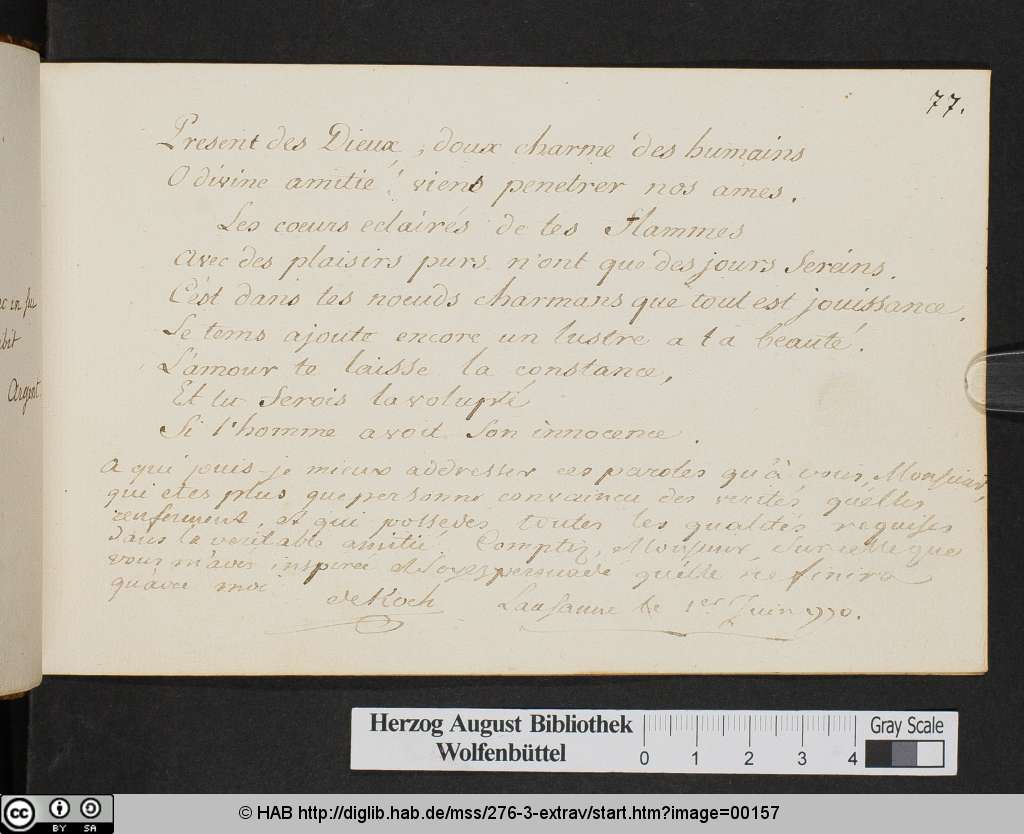 77.
Present des Dieux, doux charme des humains
O divine amitié! viens penetrer nos ames.
Les coeurs eclairés de tes flammes
Avec des plaisirs purs n'ont que des jours Sereins.
C'est dans tes noeuds charmans que tout est jouissance.
Le tems ajoute encore un lustre a ta beauté.
L'amour te laisse la constance,
Et tu Serois la volupté
Si l'homme avoit Son innocence.
A qui puis-je mieux addresser ces paroles qu'à vous, Monsieur,
qui etes plus que personne convaincu des verités qu'elles
renferment, et qui possedés toutes les qualités requises
dans la veritable amitié. Comptez, Monsieur, Sur celle que
vous m'avez inspirée et Soyez persuadé qu'elle ne finira
qu'avec moi
de Koch Lausanne le 1er Juin 1770.
ibit
Argent.
Herzog August Bibliothek
Wolfenbüttel
0 1 2 3 4
Gray Scale
CC BY SA
© HAB http://diglib.hab.de/mss/276-3-extrav/start.htm?image=00157